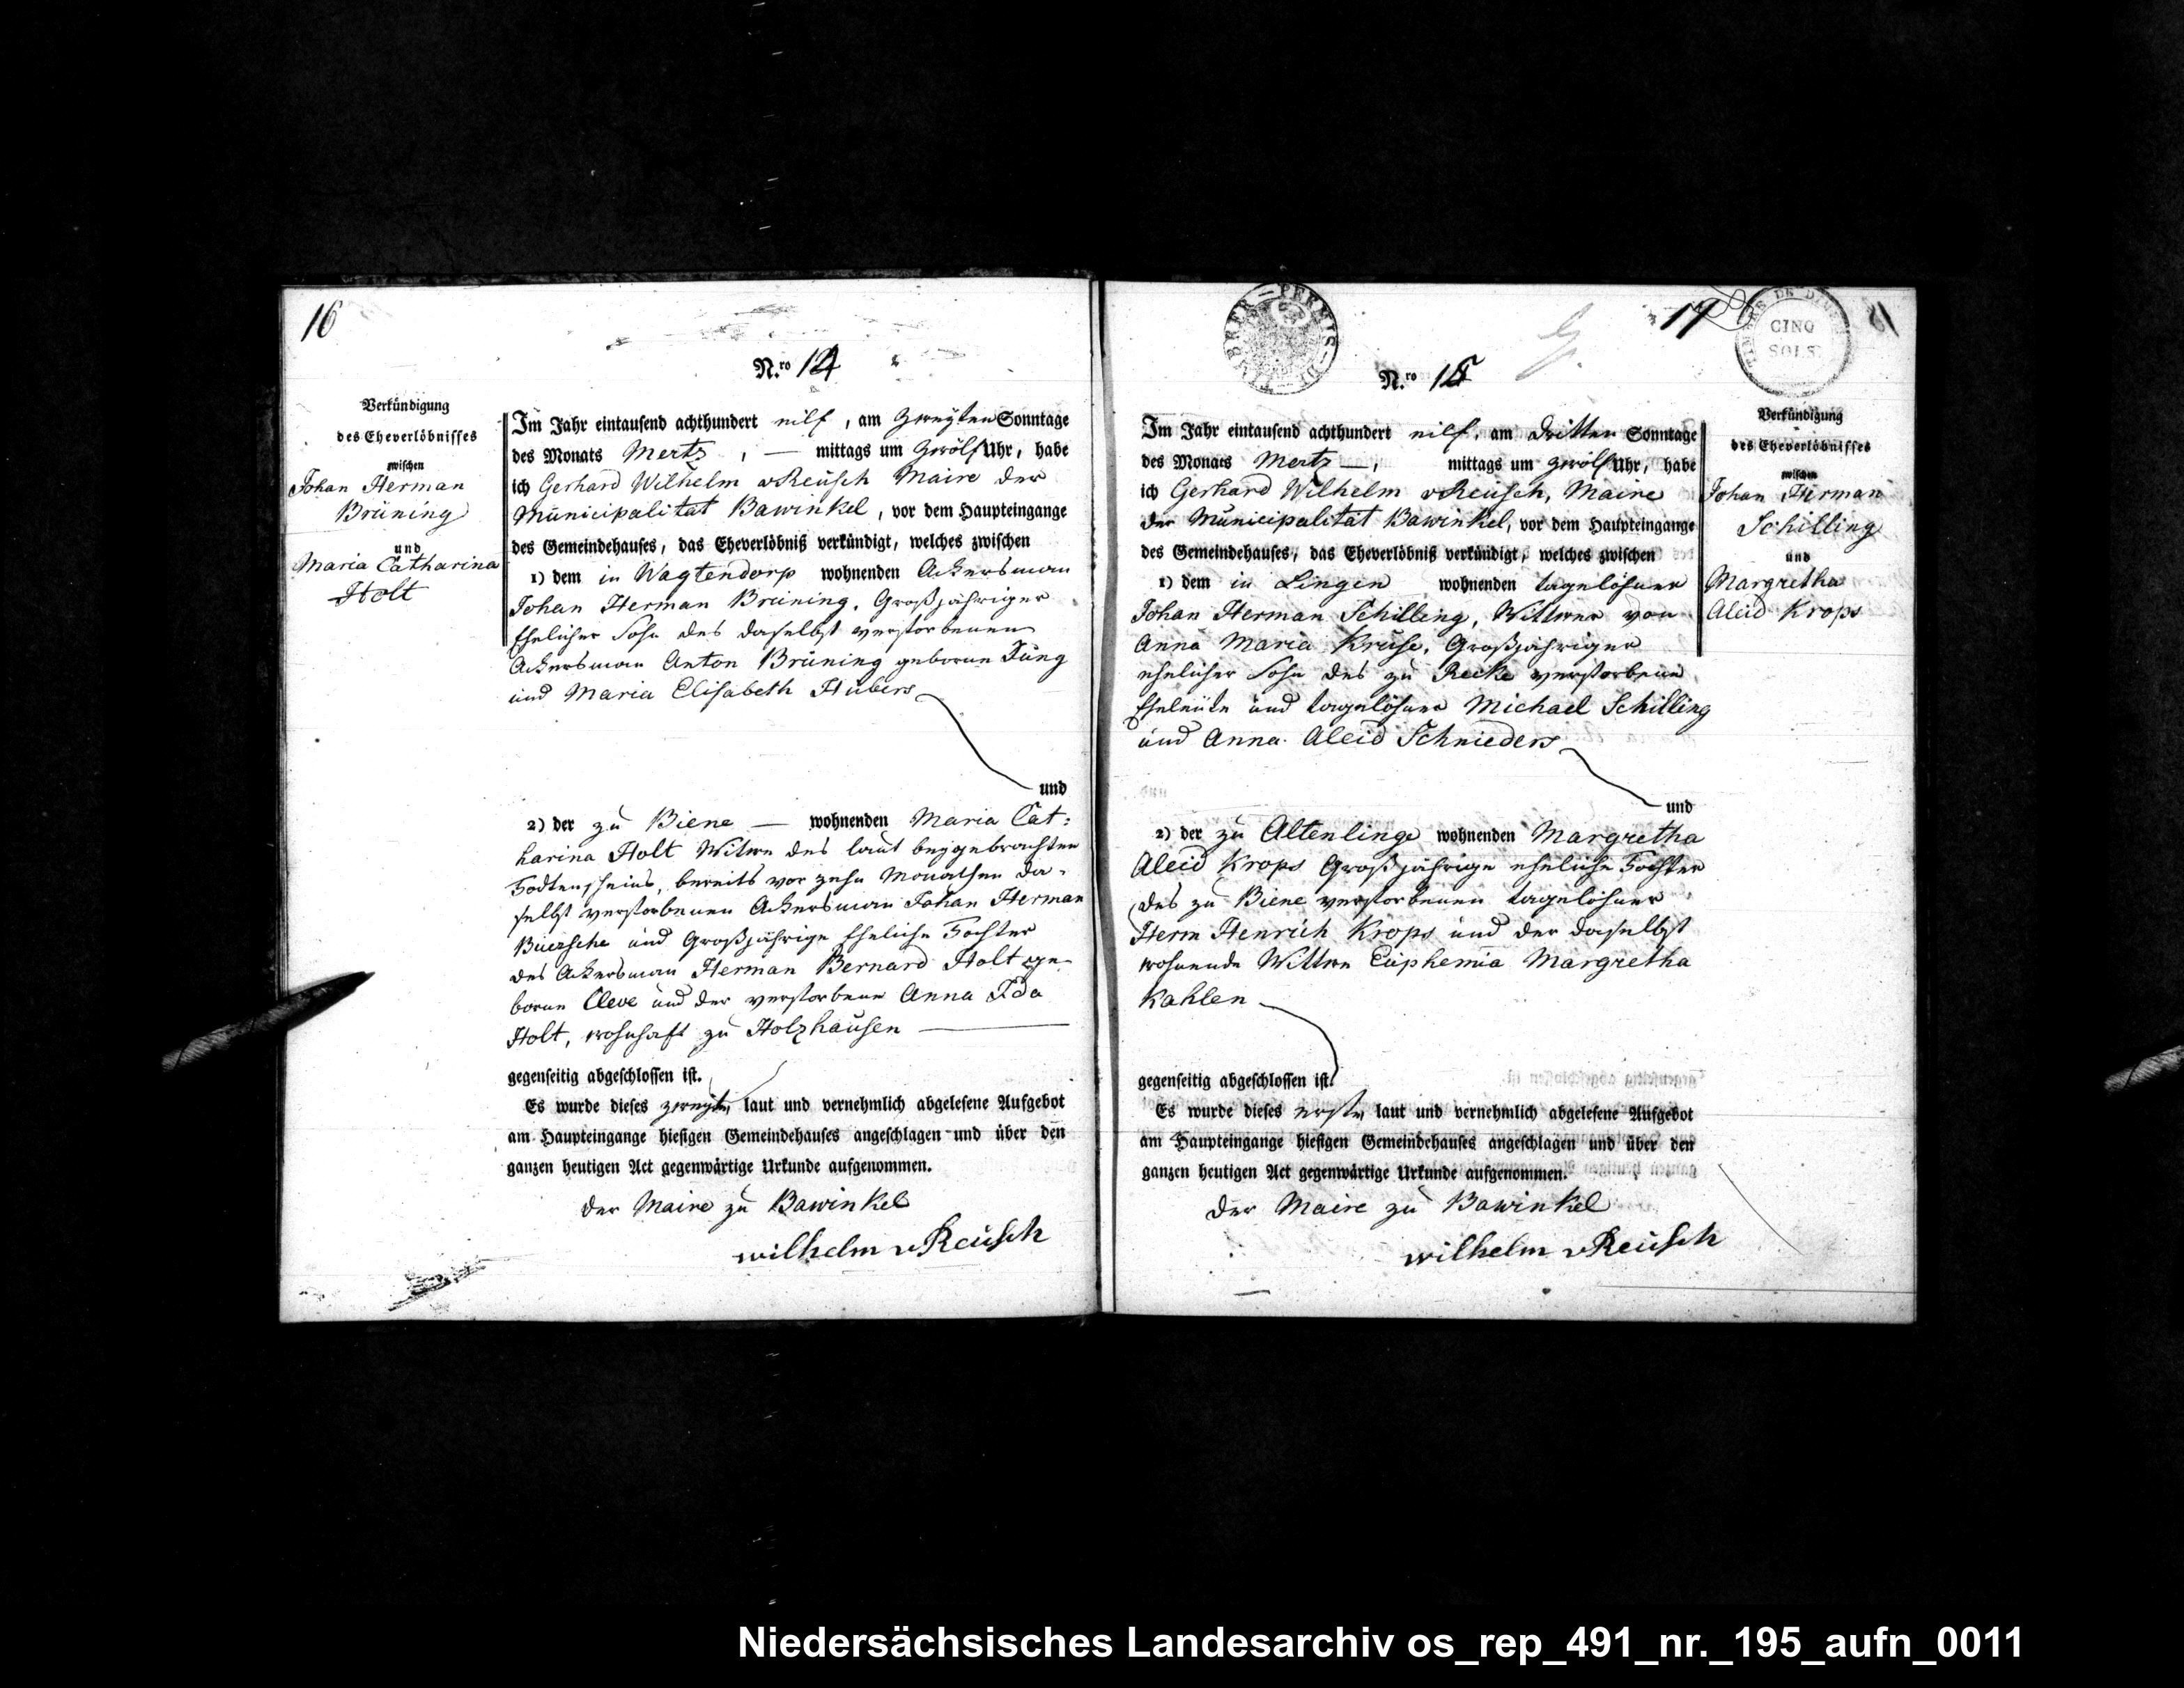 16
N.ro 14
Verkündigung
des Eheverlöbnisses
zwischen
Johan Herman
Brüning
und
Maria Catharina
Holt
Im Jahr eintausend achthundert eilf, am Zweyten Sonntage
des Monats Mertz, — mittags um Zwölf Uhr, habe
ich Gerhard Wilhelm v Reusch Maire der
Municipalitat Bawinkel, vor dem Haupteingange
des Gemeindehauses, das Eheverlöbniß verkündigt, welches zwischen
1) dem in Wagtendorp wohnenden Ackersman
Johan Herman Brüning, Großjähriger
Ehelicher Sohn des daselbst verstorbenen
Ackersman Anton Brüning geboren Jüng
und Maria Elisabeth Hubers
und
2) der zu Biene — wohnenden Maria Cat:
harina Holt Witwe des laut beygebrachten
Todtenscheins, bereits vor zehn Monathen da-
selbst verstorbenen Ackersman Johan Herman
Büersche und Großjährige Eheliche Tochter
des Ackersman Herman Bernard Holt ge-
boren Cleve und der verstorbene Anna Ida
Holt, wohnhaft zu Holzhausen
gegenseitig abgeschlossen ist.
Es wurde dieses zweyte, laut und vernehmlich abgelesene Aufgebot
am Haupteingange hiesigen Gemeindehauses angeschlagen und über den
ganzen heutigen Act gegenwärtige Urkunde aufgenommen.
der Maire zu Bawinkel
wilhelm v Reusch
17
CINQ
SOLS
N.ro 15
Verkündigung
des Eheverlöbnisses
zwischen
Johan Herman
Schilling
und
Margretha
Aleid Krops
Im Jahr eintausend achthundert eilf, am dritten Sonntage
des Monats Mertz —, mittags um zwölf Uhr, habe
ich Gerhard Wilhelm v Reusch, Maire
der Municipalitat Bawinkel, vor dem Haupteingange
des Gemeindehauses, das Eheverlöbniß verkündigt, welches zwischen
1) dem in Lingen wohnenden tagelöhner
Johan Herman Schilling, Wittwer von
Anna Maria Kruse, Großjähriger
ehelicher Sohn des zu Recke verstorbene
Eheleute und tagelöhner Michael Schilling
und Anna Aleid Schnieders
und
2) der zu Altenlinge wohnenden Margretha
Aleid Krops Großjährige eheliche Tochter
des zu Biene verstorbenen tagelöhner
Herm Henrich Krops und der daselbst
wohnende Wittwe Euphemia Margretha
Kahlen
gegenseitig abgeschlossen ist.
Es wurde dieses erste, laut und vernehmlich abgelesene Aufgebot
am Haupteingange hiesigen Gemeindehauses angeschlagen und über den
ganzen heutigen Act gegenwärtige Urkunde aufgenommen.
der Maire zu Bawinkel
wilhelm v Reusch
Niedersächsisches Landesarchiv os_rep_491_nr._195_aufn_0011